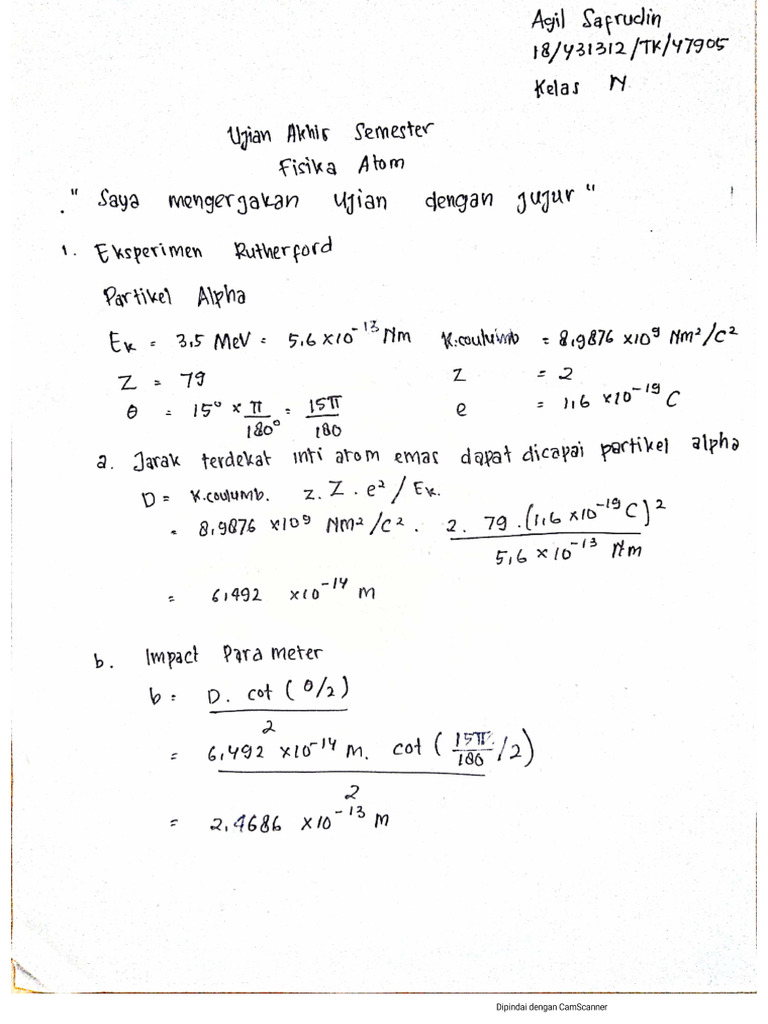 Agil Safrudin
18/431312/TK/47905
Kelas N
Ujian Akhir Semester
Fisika Atom
"Saya mengerjakan ujian dengan jujur"
1. Eksperimen Rutherford
Partikel Alpha
Ek = 3,5 MeV = 5,6 x 10^-13 Nm K.coulumb = 8,9876 x10^9 Nm²/C²
Z = 79 z = 2
θ = 15° x π/180° = 15π/180 e = 1,6 x10^-19 C
a. Jarak terdekat inti atom emas dapat dicapai partikel alpha
D = K.coulumb. z. Z. e² / Ek.
= 8,9876 x10^9 Nm²/C² . 2. 79 .(1,6 x10^-19 C)² / 5,6 x 10^-13 Nm
= 6,492 x10^-14 m
b. Impact Parameter
b = D. cot (θ/2) / 2
= 6,492 x10^-14 m. cot (15π/180 /2) / 2
= 2,4686 x10^-13 m
Dipindai dengan CamScanner